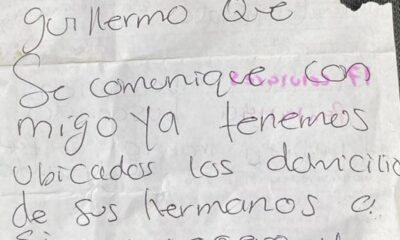 guillermo que
Se comunique con
migo ya tenemos
ubicados los domicilio
de sus hermanos o